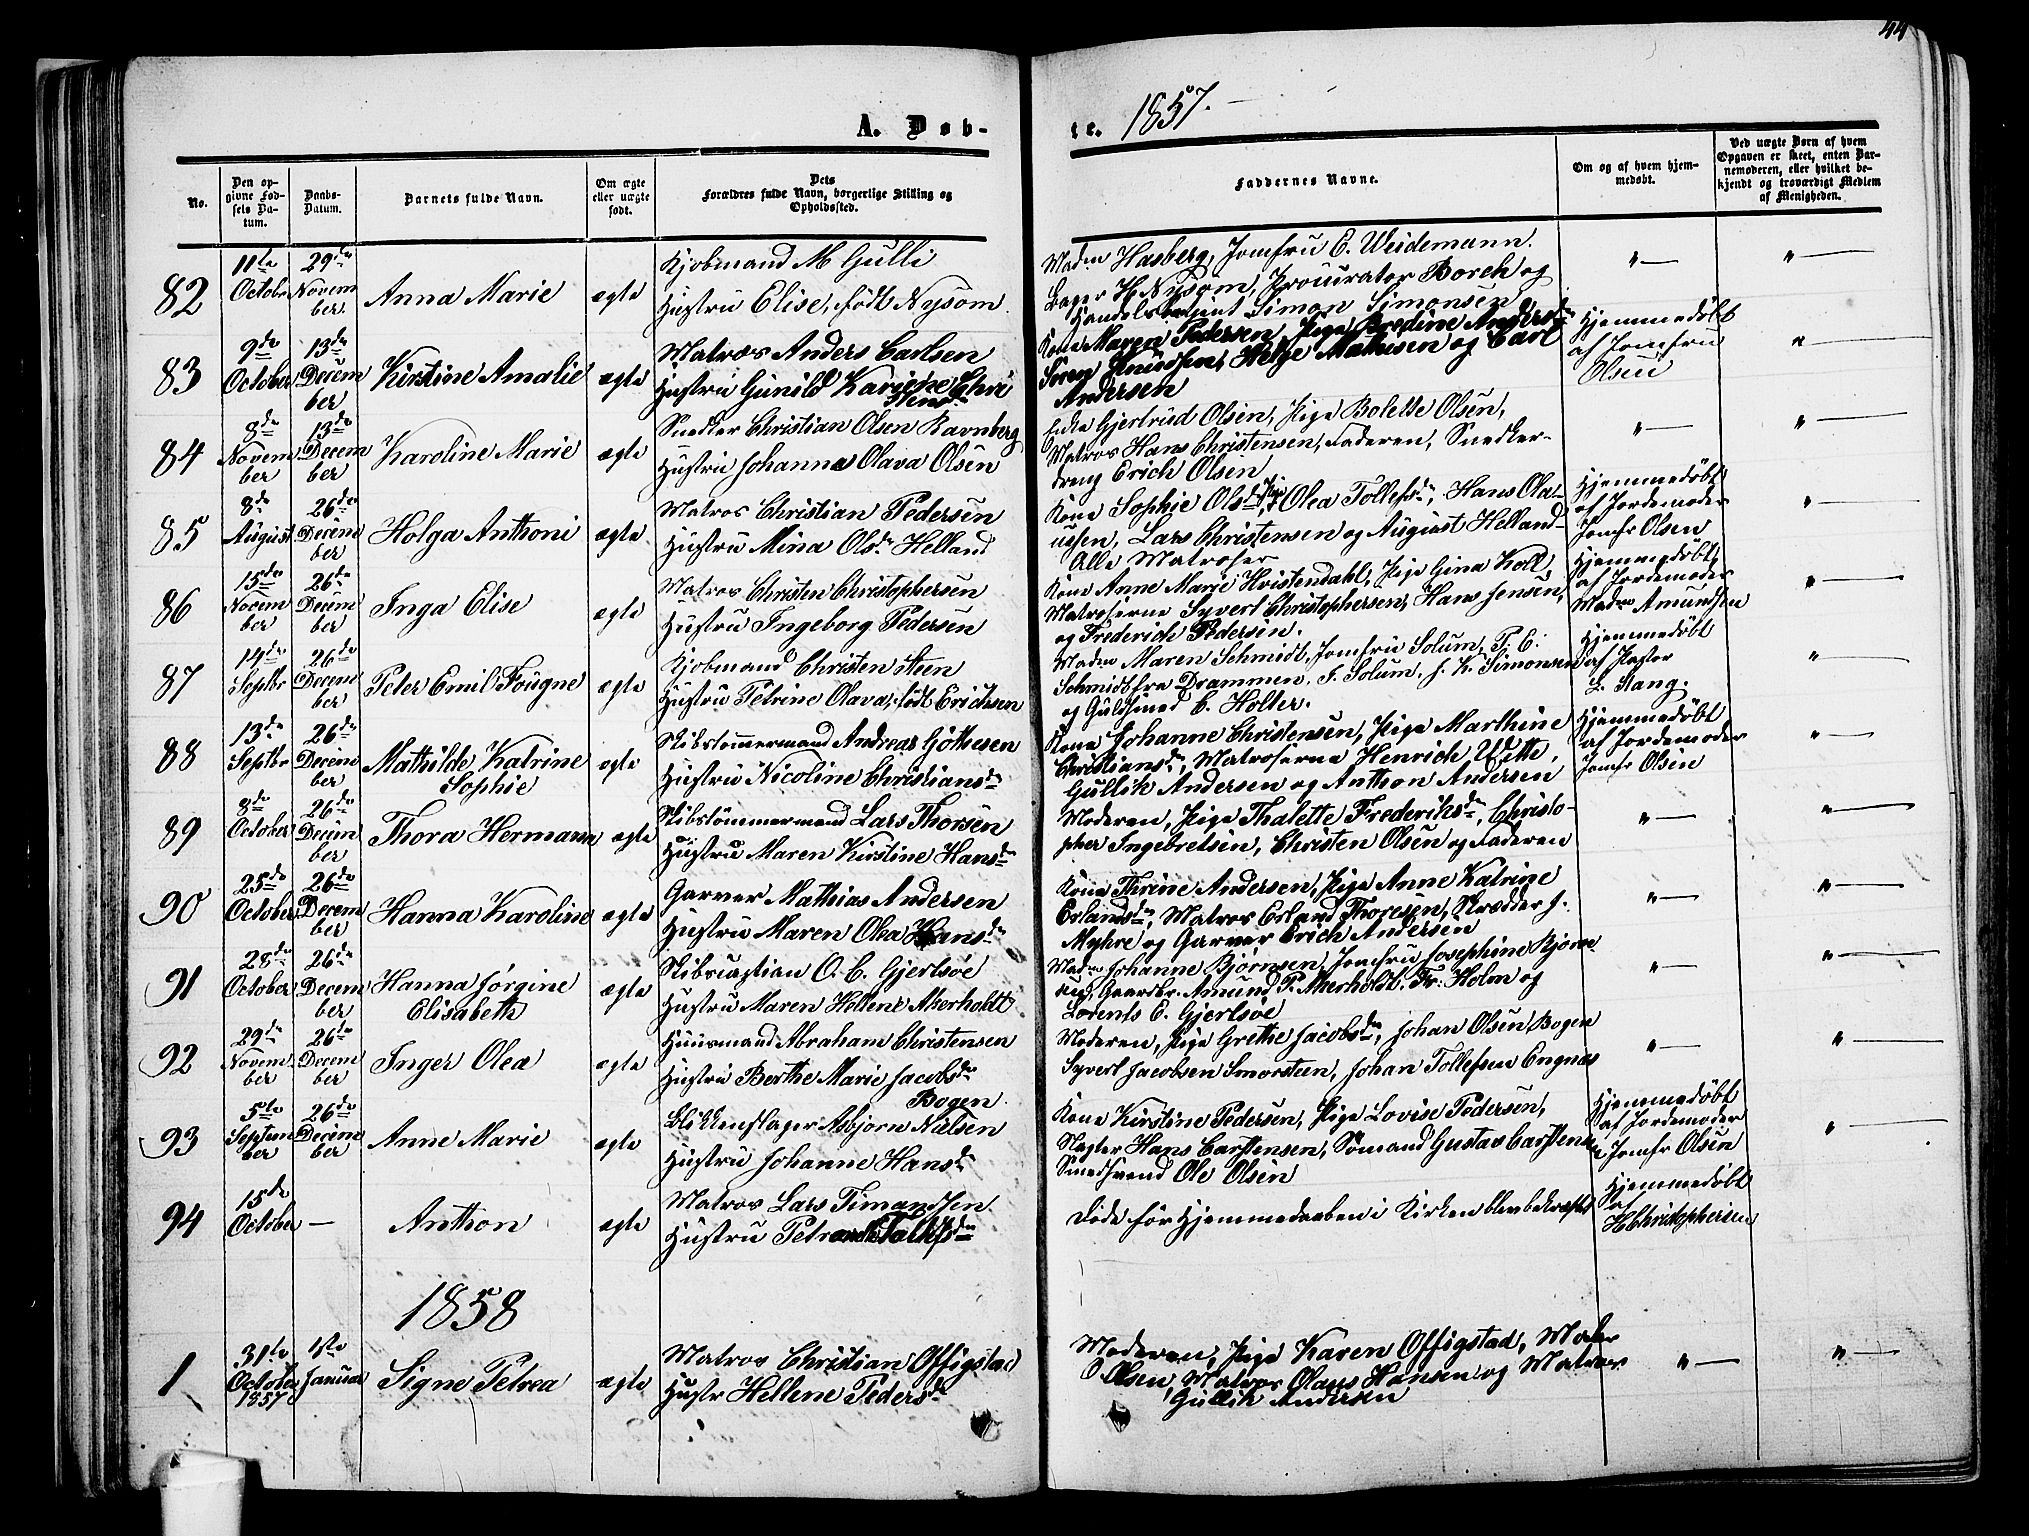 44
A. Døb-
te. 1857.
No.
Den op-
givne Fød-
sels Da-
tum.
Daabs-
Datum.
Barnets fulde Navn.
Om ægte
eller uægte
født.
Dets
Forældres fulde Navn, borgerlige Stilling og
Opholdssted.
Faddernes Navne.
Om og af hvem hjem-
medøbt.
Ved uægte Børn af hvem
Opgaven er skeet, enten Bar-
nemoderen, eller hvilket be-
kjendt og troværdigt Medlem
af Menigheden.
82
11te
October
29de
Novem
ber
Anna Marie
ægte
Kjøbmand M Gulli
Hustru Elise, født Nysom
Madm Hasberg, Jomfru E. Weidemann.
Bager H. Nysom, Procurator Borch og
Simon Simonsen
"—
"—
83
9de
October
13de
Decem
ber
Kirstine Amalie
ægte
Matros Anders Carlsen
Hustru Gunild Karine Chri
stensdr
Kone Maren Pedersen, Pige Andersdr
Søren Knudsen, Helge Mathisen og Carl
Andersen
Hjemmedøbt
af Jomfru
Olsen
"—
84
8de
Novem
ber
13de
Decem
ber
Karoline Marie
ægte
Snedker Christian Olsen Ravnberg
Hustru Johanne Olava Olsen
Enke Gjertrud Olsen, Pige Bolette Olsen,
Matros Hans Christensen, Faderen, Snedker-
dreng Erich Olsen
"—
"—
85
8de
August
26de
Decem
ber
Holga Anthoni
ægte
Matros Christian Pedersen
Hustru Mina Olsdr Helland
Kone Sophie Olsdr, Pige Olea Tollefsdr, Hans Ola-
ussen, Lars Christensen og August Helland
Alle Matroser
Hjemmedøbt
af Jordemoder
Jomfr Olsen
"—
86
15de
Novem
ber
26de
Decem
ber
Inga Elise
ægte
Matros Christen Christophersen
Hustru Ingeborg Pedersen
Kone Anne Marie Hvistendahl, Pige Gina Koll,
Matroserne Syvert Christophersen, Hans Jensen,
og Frederich Pedersen.
Hjemmedøbt
af Jordemoder
Madm Amundsen
"—
87
14de
Septbr
26de
Decem
ber
Peter Emil Fougne
ægte
Kjøbmand Christen Steen
Hustru Petrine Olava, født Erichsen
Madm Maren Schmidt, Jomfru Solum, P. C.
Schmidt fra Drammen, F. Solum, J. K. Simonsen
og Guldsmed C. Holter.
Hjemmedøbt
af Pastor
Stang.
"—
88
13de
Septbr
26de
Decem
ber
Mathilde Katrine
Sophie
ægte
Skibstømmermand Andreas Gøttesen
Hustru Nicoline Christiansdr
Kone Johanne Christensen, Pige Marthine
Christiansdr, Matroserne Henrich Witte,
Gullik Andersen og Anthon Andersen
Hjemmedøbt
af Jordemoder
Jomfr Olsen
"—
89
8de
October
26de
Decem
ber
Thora Hermana
ægte
Skibstømmermand Lars Thorsen
Hustru Maren Kirstine Hansdr
Moderen, Pige Thalette Frederiksdr, Christo-
pher Ingebretsen, Christen Olsen og Faderen
"—
"—
90
25de
October
26de
Decem
ber
Hanna Karoline
ægte
Garver Mathias Andersen
Hustru Maren Olea Hansdr
Kone Thrine Andersen, Pige Anne Katrine
Erlandsdr, Matros Erland Thoresen, Skrædder J.
Myhre og Garver Erich Andersen
"—
"—
91
28de
October
26de
Decem
ber
Hanna Jørgine
Elisabeth
ægte
Skibscaptian O. C. Gjertsøe
Hustru Maren Hellene Akerholdt
Madm Johanne Bjørnsen, Jomfru Josephine Bjørn
Gaardbr. Amund P. Akerholdt, Fr. Holm og
Lorents C. Gjertsøe
"—
"—
92
29de
Novem
ber
26de
Decem
ber
Inger Olea
ægte
Huusmand Abraham Christensen
Hustru Berthe Marie Jacobsdr
Bogen
Moderen, Pige Grethe Jacobsdr, Johan Olsen Bogen
Syvert Jacobsen Smorsteen, Johan Tollefsen Engnæs
"—
"—
93
5te
Septem
ber
26de
Decem
ber
Anne Marie
ægte
Blikkenslager Asbjørn Nielsen
Hustru Johanne Hansdr
Kone Kirstine Pedersen, Pige Lovise Pedersen,
Slagter Hans Carstensen, Sømand Gustav Carstensen
Smedsvend Ole Olsen
Hjemmedøbt
af Jordemoder
Jomfr Olsen
"—
94
15de
October
—
Anthon
ægte
Matros Lars Timandsen
Hustru
Døde før Hjemmedaaben i Kirken blev bekræftet
Hjemmedøbt
af
H Christophersen
1858
1
31te
October
1857
1ste
Januar
Signe Petrea
ægte
Matros Christian Offigstad
Hustr Hellene Pedersdr
Moderen, Pige Karen Offigstad, Maler
O. Olsen, Matros Olaus Hansen og Matros
Gullik Andersen
"—
"—